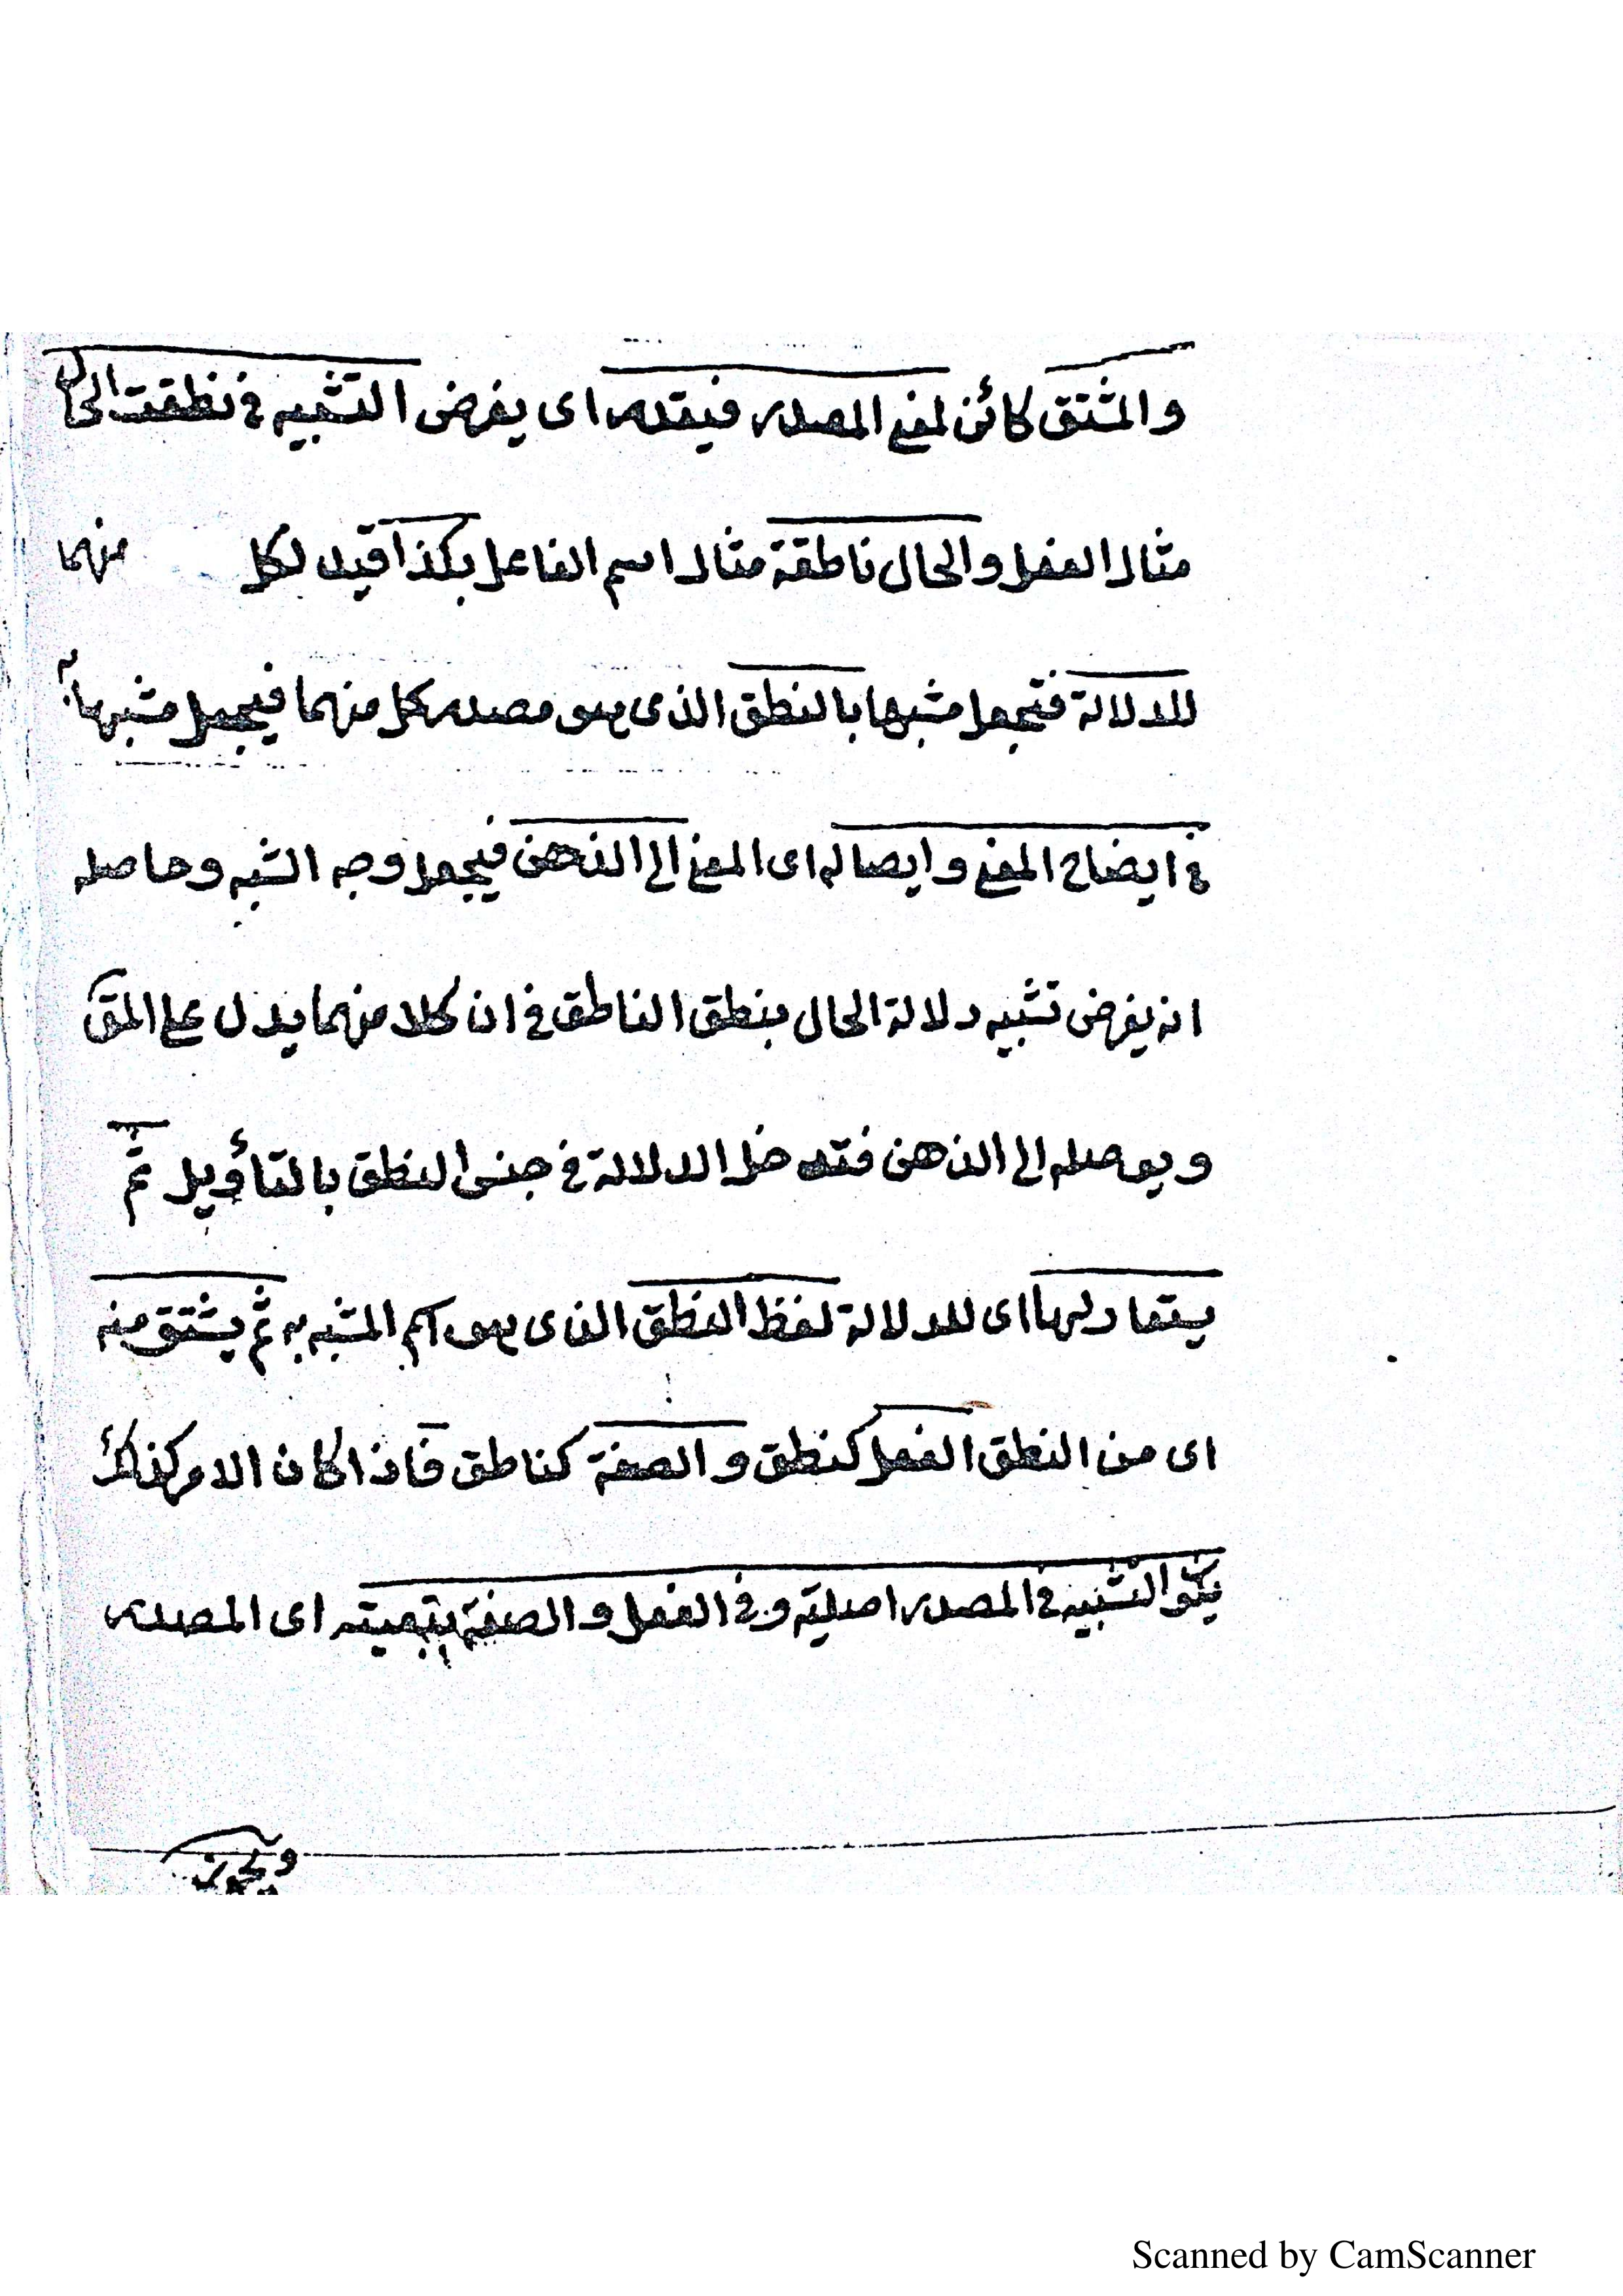 والمشتق كائن لمعنى المصدر فيقدر اى يفرض التشبيه فى نطقت الحال
مثال الفعل والحال ناطقة مثال اسم الفاعل بكذا قيد لكل منهما
للدلالة فتجعل مشبها بالنطق الذى هو مصدر كل منهما فيجعل مشبها به
فى ايضاح المعنى وايصاله اى المعنى الى الذهن فيجعل وجه الشبه وحاصله
انه يفرض تشبيه دلالة الحال بنطق الناطق فى ان كلا منهما يدل على المق
ويوصله الى الذهن فتدخل الدلالة فى جنس النطق بالتأويل ثم
يستعار لها اى للدلالة لفظ النطق الذى هو اسم المشبه به ثم يشتق منه
اى من النطق الفعل كنطق والصفة كناطق فاذا كان الامر كذلك
يكون التشبيه فى المصدر اصلية وفى الفعل والصفة بتبعيته اى المصدر
Scanned by CamScanner